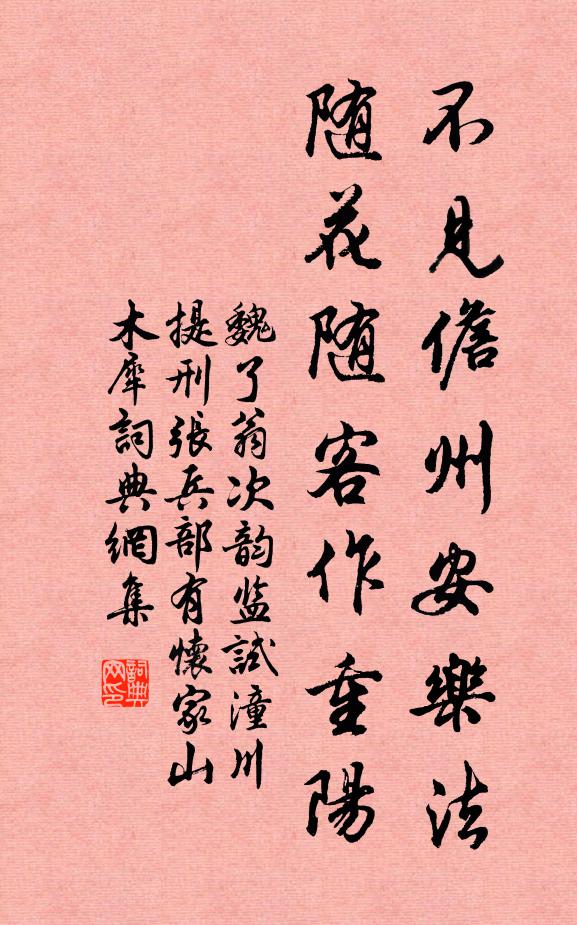 不見儋州安樂法
随花随客作重陽
魏了翁次韵监試潼川
提刑張兵部有懷家山
木犀詞典網集
詞典网印